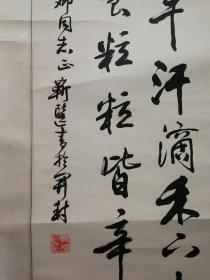 午汗滴禾下
粒粒皆辛
同志正 靳书於开封